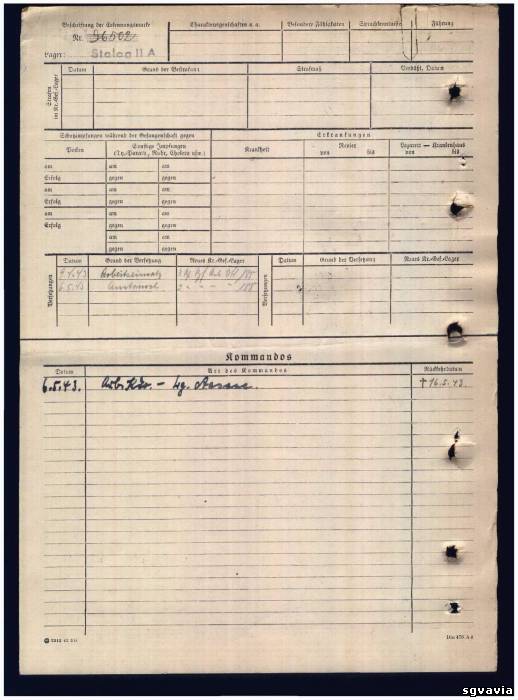 Beschriftung der Erkennungsmarke
Nr. 36502
Lager: Stalag II A
Charaktereigenschaften u. a.
Besondere Fähigkeiten
Sprachkenntnisse
Führung
Strafen im Kr.-Gef.-Lager
Datum
Grund der Bestrafung
Strafmaß
Verbüßt, Datum
Schutzimpfungen während der Gefangenschaft gegen
Erkrankungen
Pocken
Sonstige Impfungen
(Ty.-Paraty., Ruhr, Cholera usw.)
Krankheit
Revier
von bis
Lazarett — Krankenhaus
von bis
am am am
Erfolg gegen gegen
am am am
Erfolg gegen gegen
am am am
Erfolg gegen gegen
am am
gegen gegen
Versetzungen
Datum Grund der Versetzung Neues Kr.-Gef.-Lager
Versetzungen
Datum Grund der Versetzung Neues Kr.-Gef.-Lager
Arbeitseinsatz
6.5.43
Kommandos
Datum Art des Kommandos Rückkehrdatum
6.5.43. † 16.5.43.
Din 476 A 4
sgvavia